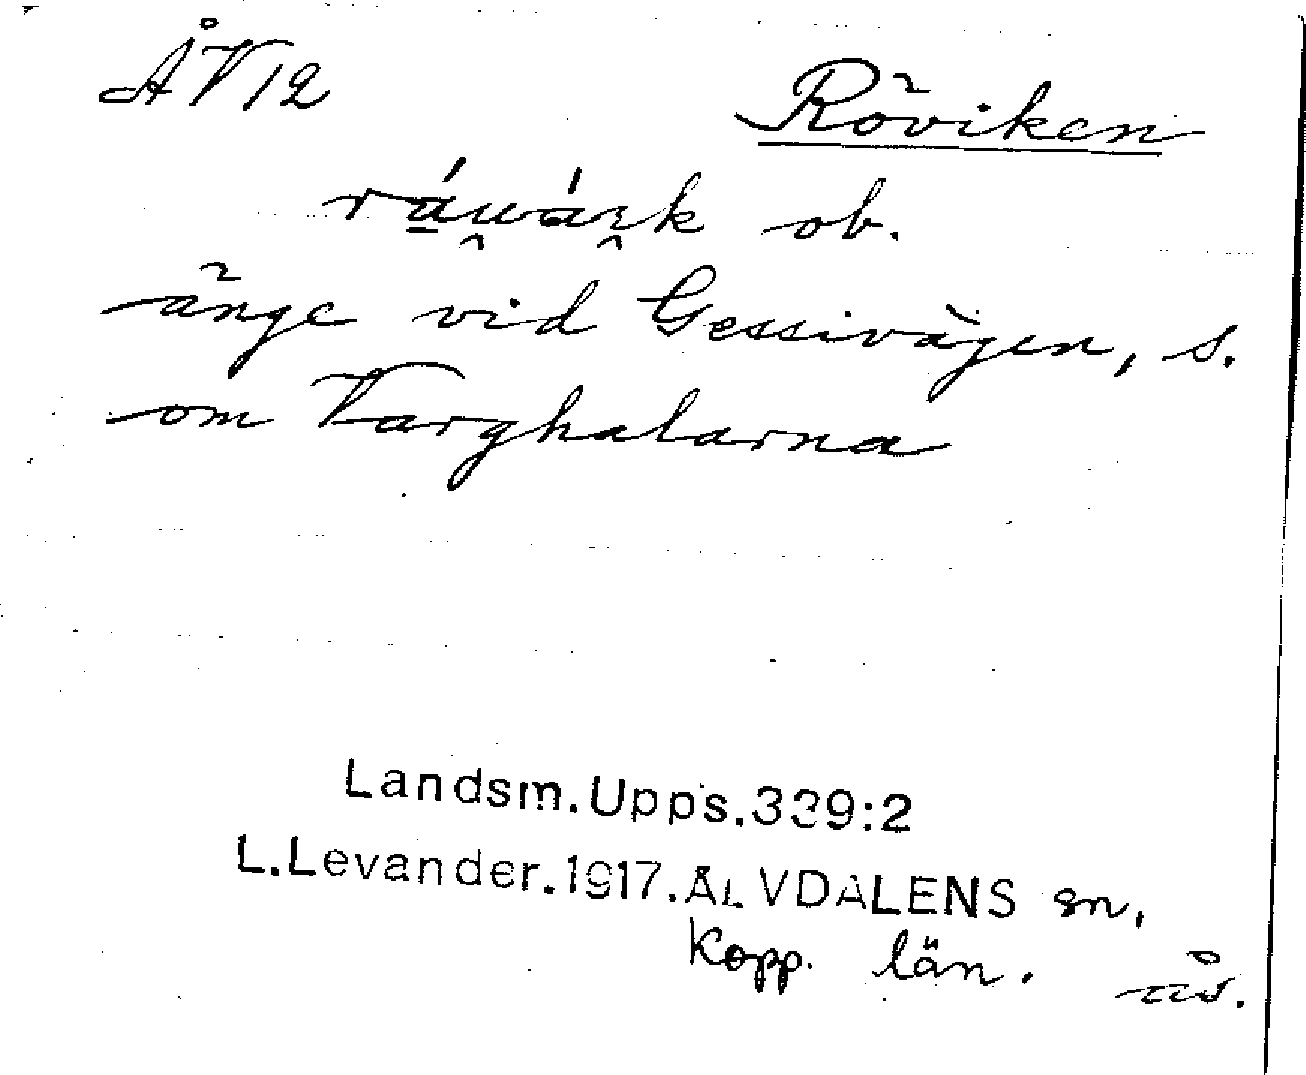 ÅV12
Röviken
ráwárk ob.
änge vid Gessivägen, s.
om Varghalarna
Landsm.Upps.339:2
L.Levander.1917.ÄLVDALENS sn.
Kopp. län. ås.